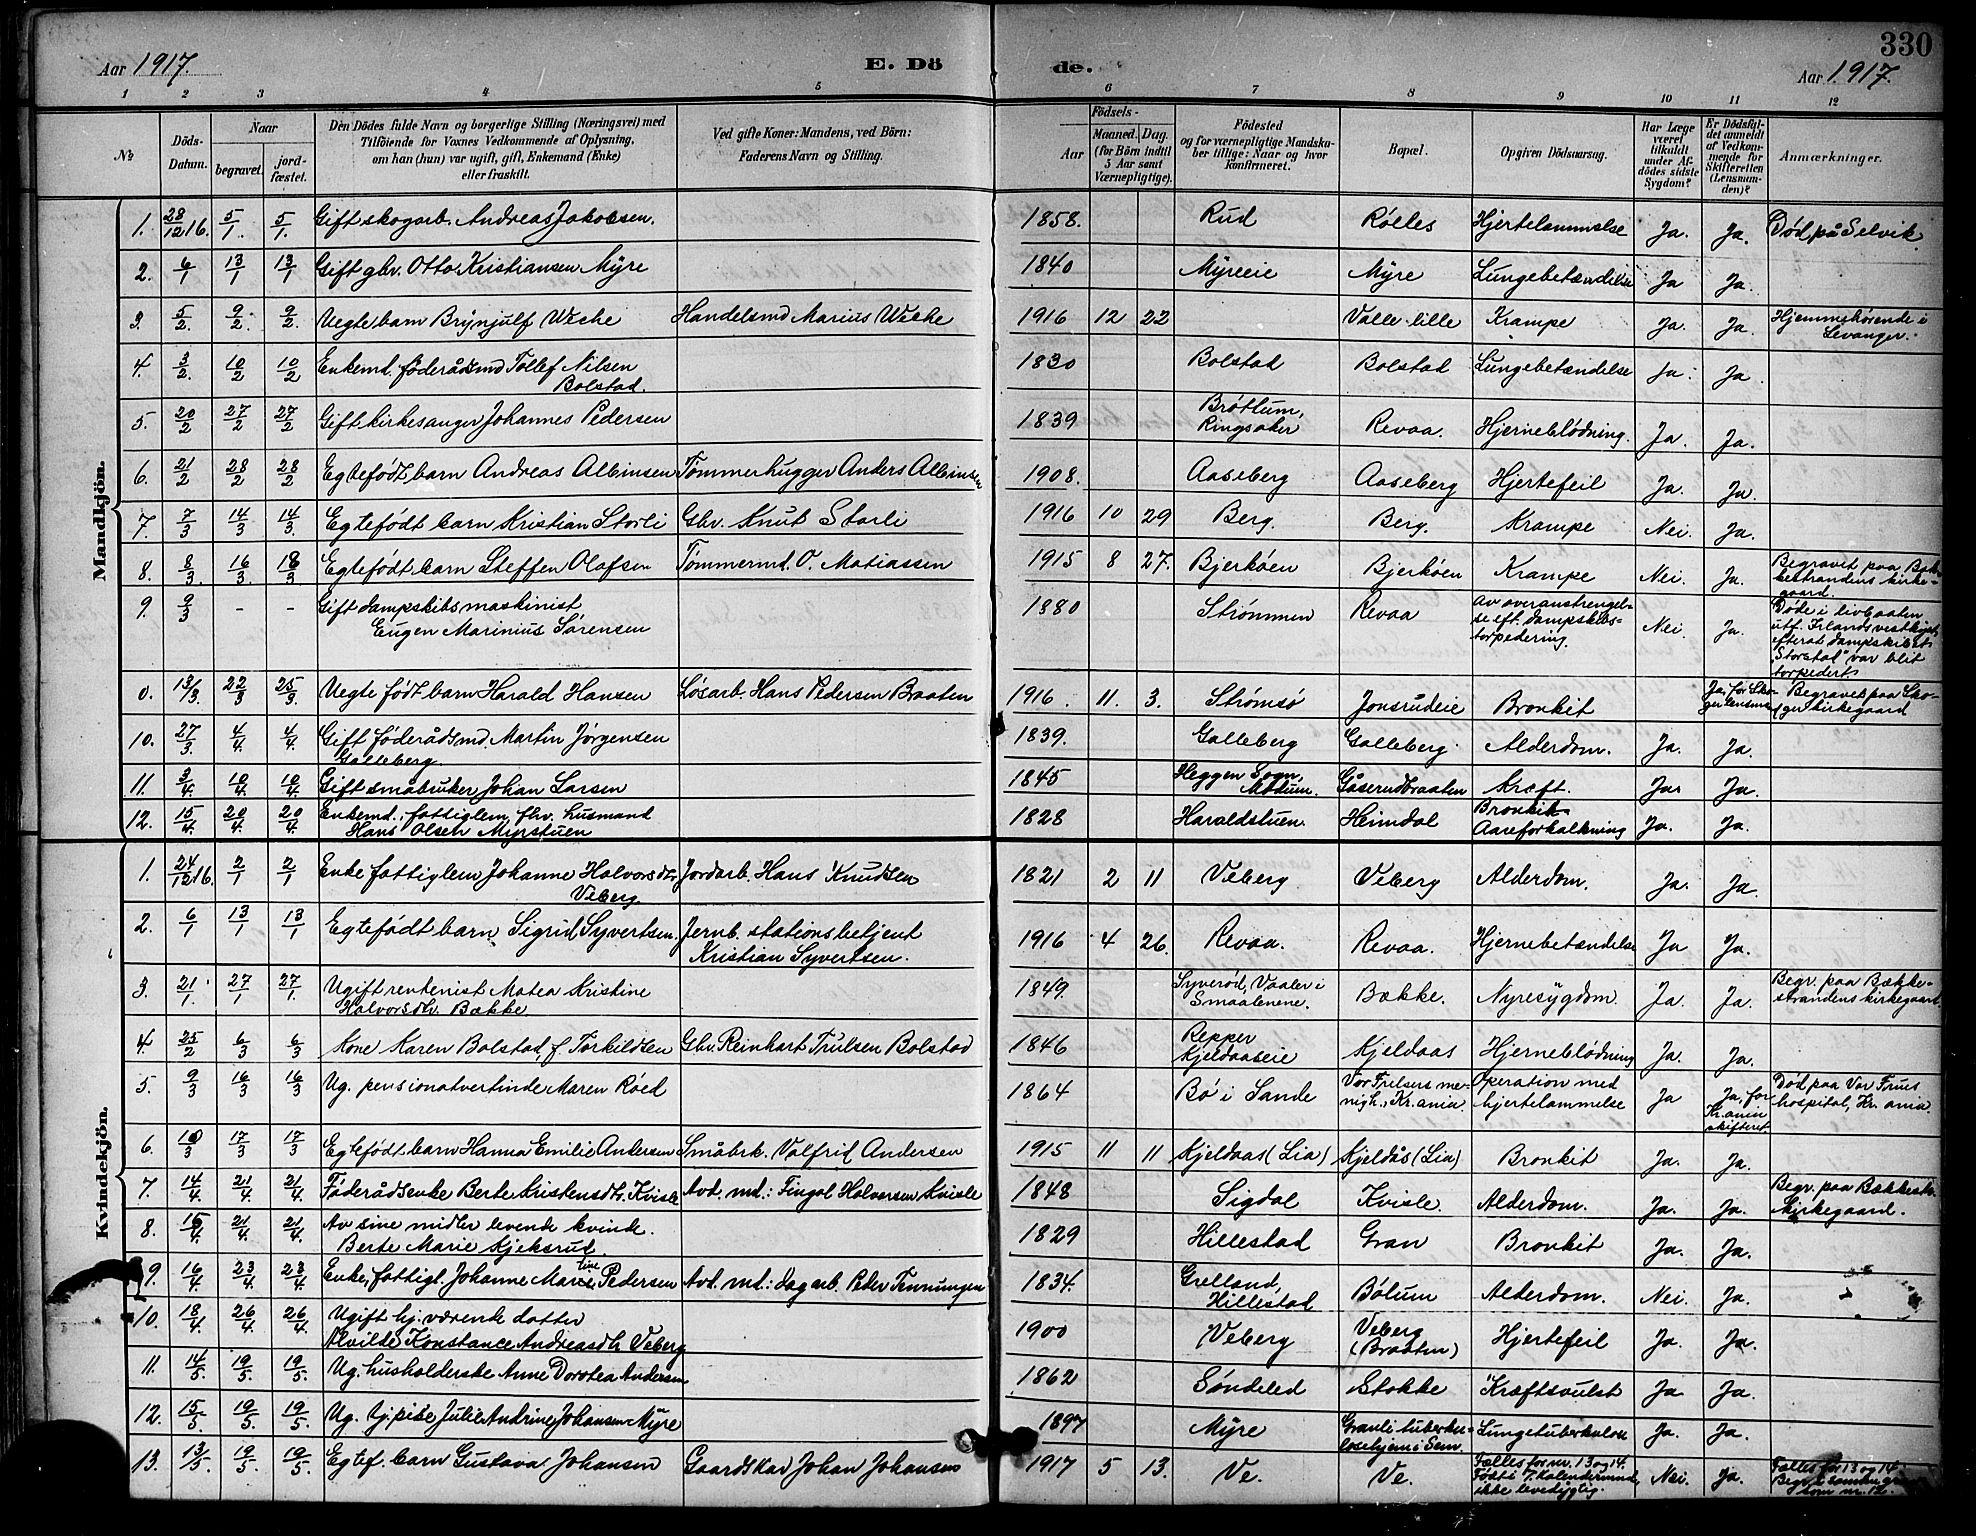 330
Aar 1917. E. Dö de. Aar 1917.
1 2 3 4 5 6 7 8 9 10 11 12
No. Döds-Datum. Naar begravet. jordfæstet. Den Dödes fulde Navn og borgerlige Stilling (Næringsvei) med Tilföiende for Voxnes Vedkommende af Oplysning, om han (hun) var ugift, gift, Enkemand (Enke) eller fraskilt. Ved gifte Koner: Mandens, ved Börn: Faderens Navn og Stilling. Födsels- Aar Maaned. Dag. (for Börn indtil 5 Aar samt Værnepligtige). Födested og for værnepligtige Mandskaber tillige: Naar og hvor konfirmeret. Bopæl. Opgiven Dödsaarsag. Har Læge været tilkaldt under Afdödes sidste Sygdom? Er Dödsfaldet anmeldt af Vedkommende for Skifteretten (Lensmanden)? Anmærkninger.
Mandkjön.
1. 28/12 16. 5/1. 5/1. Gift skogarb. Andreas Jakobsen. 1858. Rud Rølles Hjertelammelse Ja. Ja. Død på Selvik
2. 6/1 13/1 13/1 Gift gbr. Otto Kristiansen Myre 1840 Myreeie Myre Lungebetændelse Ja Ja.
3. 5/2. 9/2. 9/2. Uegte barn Brynjulf Weche Handelsmd Marius Weche 1916 12 22 Valle lille Krampe Ja. Ja. Hjemmehørende i Levanger.
4. 3/2. 10/2 10/2 Enkemd. føderådsmd Tollef Nilsen Bolstad. 1830 Bolstad Bolstad Lungebetændelse Ja. Ja.
5. 20/2 27/2 27/2 Gift kirkesanger Johannes Pedersen 1839 Brøttum, Ringsaker Revaa. Hjerneblödning. Ja. Ja.
6. 21/2 28/2 28/2 Egtefødt barn Andreas Albinsen Tømmerhugger Anders Albinsen 1908. Aaseberg Aaseberg Hjertefeil Ja. Ja.
7. 7/3 14/3 14/3 Egtefødt barn Kristian Storli Gbr. Knut Storli 1916 10 29 Berg. Berg. Krampe Nei. Ja.
8. 8/3. 16/3. 18/3 Egtefødt barn Steffen Olafsen Tømmermd. O. Matiassen 1915 8 27. Bjerkøen Bjerkøen Krampe Nei. Ja. Begravet paa kirkegaard.
9. 9/3 - - Gift dampskibsmaskinist Eugen Marinius Sørensen 1880 Strømmen Revaa Av overanstrengelse eft. dampskibstorpedering. Nei. Ja. Døde i livbaaten utf. Irlands vestkyst efterat dampskibet "Storstad" var blit torpedert
0. 13/3 22/3 25/3 Uegte født barn Harald Hansen Løsarb. Hans Pedersen Braaten 1916. 11. 3. Strømsø Jonsrudeie Bronkit Ja, for Skoger lensmd Begravet paa Skoger kirkegaard
10. 27/3 4/4. 4/4. Gift føderådsmd. Martin Jørgensen Galleberg. 1839. Galleberg Galleberg. Alderdom. Ja. Ja.
11. 3/4. 10/4 10/4 Gift småbruker Johan Larsen 1845 Heggen Sogn, Modum. Gåserudbraaten Kræft. Ja. Ja.
12. 15/4. 20/4. 20/4. Enkemd. fattiglem, fhv. husmand Hans Olsen Myrstuen 1828 Haraldstuen. Heimdal Bronkit Aareforkalkning Ja. Ja.
Kvindekjön.
1. 24/12 16. 2/1 2/1 Enke fattiglem Johanne Halvorsdtr. Veberg Jordarb. Hans Knudsen 1821 2 11 Veberg Veberg Alderdom. Ja. Ja.
2. 6/1 13/1 13/1 Egtefødt barn Sigrid Syvertsen. Jernb. stationsbetjent Kristian Syvertsen. 1916 4 26. Revaa. Revaa. Hjernebetændelse Ja Ja.
3. 21/1. 27/1 27/1. Ugift rentenist Matea Kristine Halvorsdtr. Bække 1849. Syverød, Vaaler i Smaalenene. Bække. Nyresygdom. Ja. Ja. Begr. paa Bækkestrandens kirkegaard
4. 25/2 6/3 6/3 Kone Karen Bolstad, f. Torkildsen Gbr. Reinhart Trulsen Bolstad 1846 Repper Kjeldaaseie Kjeldaas Hjerneblödning Ja. Ja.
5. 9/3 16/3 16/3 Ug. pensionatvertinde Maren Röed 1864 Bø i Sande Vor Frelsers menigh., Kr.ania. Operation med hjertelammelse Ja Ja, for Kr.ania skifteret. Død paa Vor Frues hospital, Kr.ania.
6. 10/3 17/3 17/3 Egtefødt barn Hanna Emilie Andersen Småbrk. Valfrid Andersen 1915 11 11 Kjeldaas (Lia) Kjeldås (Lia) Bronkit Ja. Ja.
7. 14/4. 21/4. 21/4. Føderådsenke Berte Kristensdtr. Kvisle Avd. md.: Fingal Halvorsen Kvisle 1848 Sigdal Kvisle. Alderdom. Ja. Ja. Begr. paa Bækkestr. kirkegaard.
8. 15/4. 21/4. 21/4. Av sine midler levende kvinde. Berte Marie Kjeksrud. 1829 Hillestad Gran Bronkit Ja. Ja.
9. 16/4. 23/4. 23/4. Enke, fattigl. Johanne Martine Pedersen Avd. md.: dagarb. Peder Tennungen 1834. Grelland, Hillestad Bølum Alderdom. Nei. Ja.
10. 18/4. 26/4. 26/4. Ugift hj. værende datter Alvilde Konstance Andreasdtr. Veberg 1900 Veberg Veberg (Braaten) Hjertefeil Ja. Ja.
11. 14/5. 19/5. 19/5. Ug. husholderske Anne Dorotea Andersen 1862 Søndeled Stokke Kræftsvulst Ja. Ja.
12. 15/5 19/5. 19/5. Ug. Julie Andrine Johansen Myre 1897 Myre Granli tuberkulosehjem i Sem. Lungetuberkulose Ja. Ja.
13. 13/5. 19/5. 19/5. Egtef. barn Gustava Johansen Gaardskar Johan Johansen 1917 5 13. Ve. Ve. Fælles for nr. 13 og 14. Født i 7. kalendermnd, ikke levedygtig. Nei. Ja. Fælles for 13 og 14: Begr. i samme grav som nr. 12.